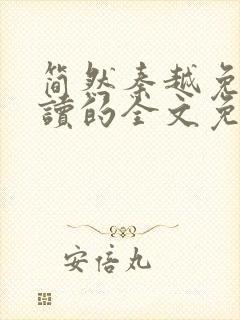 简然秦越免
讀的全文免
安倍丸